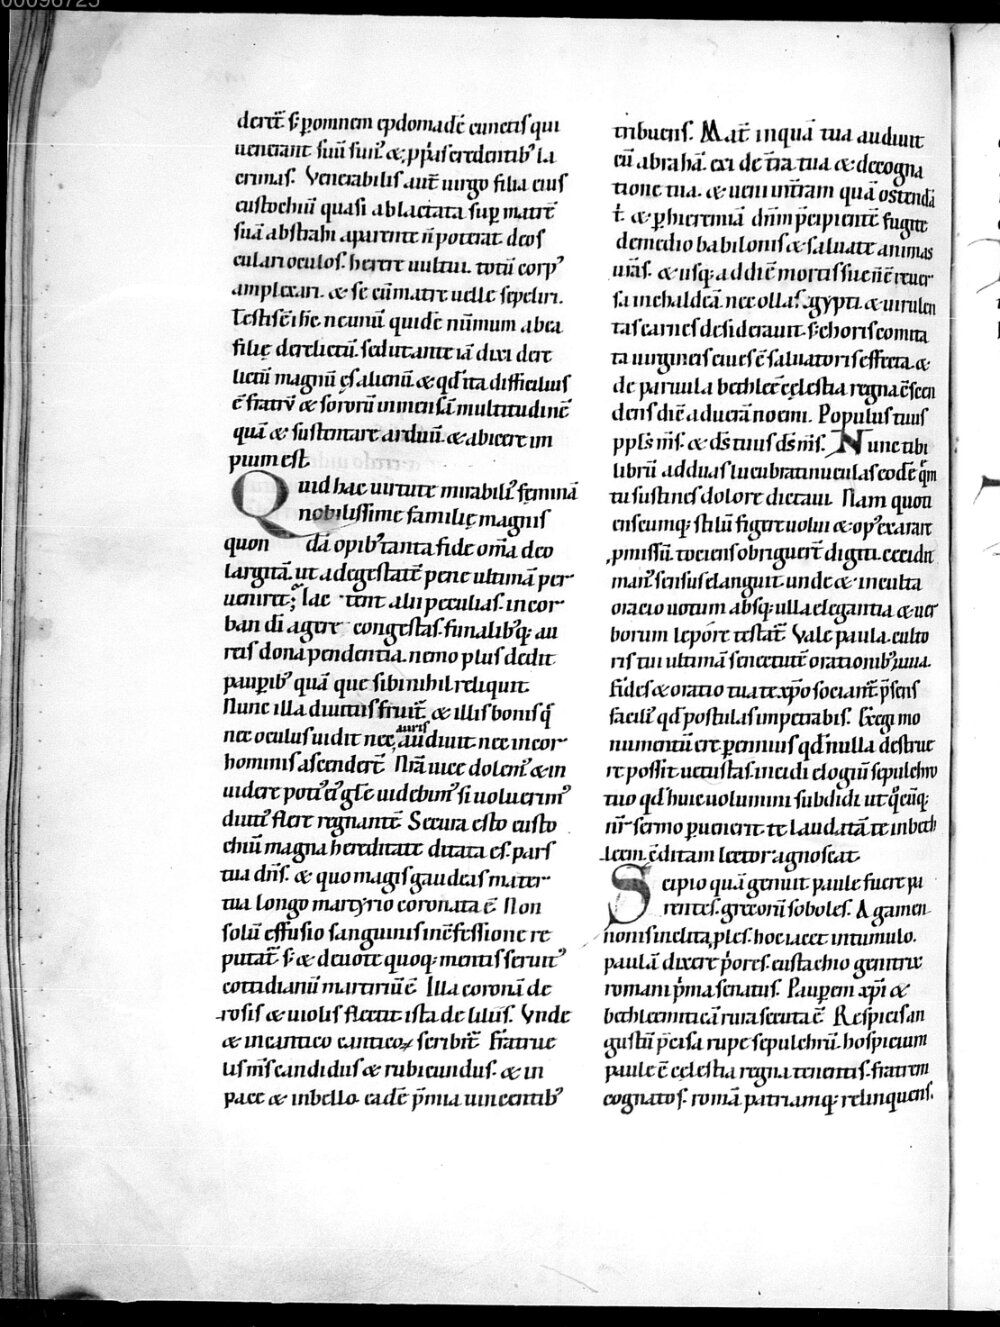 00096725
derēt s; ꝑ omnem epdomadē cunctis qui
uenerant suū fun᷒ & ꝓpˈas credentib᷒ la
crimas. Venerabilis aut̄ uirgo filia eius
eustochiū quasi ablactata suꝑ matrē
suā abstrahi a parente n̄ poterat. deos
culari oculos. herere uultui. totū corp᷒
amplexari. & se cū matre uelle sepeliri.
Testis ē ih̄c ne unū quidē nūmum ab ea
filię derelictū. sed ut ante iā dixi dere
lictū magnū ęs alienū & qd̄ ita difficilius
ē fratrū & sororū inmensā multitudinē
quā & sustentare arduū. & abicere im
pium est.
Quid hac uirtute mirabili᷒ fęminā
nobilissime familię magnis
quon dā opib᷒ tanta fide om̄a deo
largitā. ut ad egestatē pene ultimā per
ueniret; Iac tent alii peculias. in cor
ban di agere congestas. funalib᷒q; au
reis dona pendentia. nemo plus dedit
pauꝑib᷒ quā que sibi nihil reliquit.
Nunc illa diuitiis fruit̄. & illis bonis q̄
nec oculus uidit nec auris audiuit. nec in cor
hominis ascenderē. Nr̄ā uicē dolem᷒ & in
uidere poti᷒ ei᷒ gl̄ę uidebim᷒ si uoluerim᷒
diuti᷒ flere regnantē. Secura esto eusto
chiū magna hereditate ditata es. pars
tua dn̄s. & quo magis gaudeas mater
tua longo martyrio coronata ē. Non
solū effusio sanguinis in c̄fessione re
putat̄. s; & deuote quoq; mentis seruit᷒
cottidianū martiriū ē. Illa coronā de
rosis & uiolis flectit. ista de liliis. Vnde
& in cantico canticoꝝ scribit̄. Fratrue
lis m̄s candidus & rubicundus. & in
pace & in bello. eadē p̄mia uincentib᷒
tribuens. Mat̄ inquā tua audiuit
cū abrahā. exi de t̄ra tua & de cogna
tione tua. & ueni in t̄ram quā ostendā
t̄. & ꝑ hieremiā dn̄m p̄cipientē fugite
de medio babilonis & saluate animas
ur̄as. & usq; ad diē mortis sue n̄ ē reuer
sa in chaldeā. nec ollas ęgypti & uirulen
tas carnes desiderauit. s; choris comita
ta uirgineis ciuis ē saluatoris effecta. &
de paruula bethleē cęlestia regna c̄scen
dens diē ad uerā noemi. Populus tuus
ppl̄s m̄s. & ds̄ tuus ds̄ m̄s. Nunc tibi
librū ad duas lucubratiunculas eodē qm̄
tu sustines dolore dictaui. Nam quoti
enscumq; stilū figere uolui & op᷒ exarare
ꝓmissū. tociens obriguerē digiti. cecidit
man᷒ sensus elanguit. unde & inculta
oracio uotum absq; ulla elegantia & uer
borum lepóre testat̄. Vale paula. culto
ris tui ultimā senectutē orationib᷒ iuua.
Fides & oratio tua te xp̄o sociant̄. p̄sens
facili᷒ qd̄ postulas impetrabis. Exegi mo
numentū ere ꝑennius qd̄ nulla destrue
re possit uetustas. incidi elogiū sepulchro
tuo qd̄ huic uolumini subdidi ut q̊cūq;
nr̄ sermo ꝑuenerit. te laudatā. te in beth
leem c̄ditam lector agnoscat.
Scipio quā genuit paule fuere pa
rentes. grecorū soboles. Agamen
nonis inclita ꝓles. hoc iacet in tumulo.
paulā dixere p̄ores. eustachio genitrix
romani p̄ma senatus. Pauꝑem xp̄i &
bethleemitica rura secuta ē. Respicis an
gustū p̄cisa rupe sepulchrū. hospicium
paule ē cęlestia regna tenentis. fratrem
cognatos. romā patriamq; relinquens.